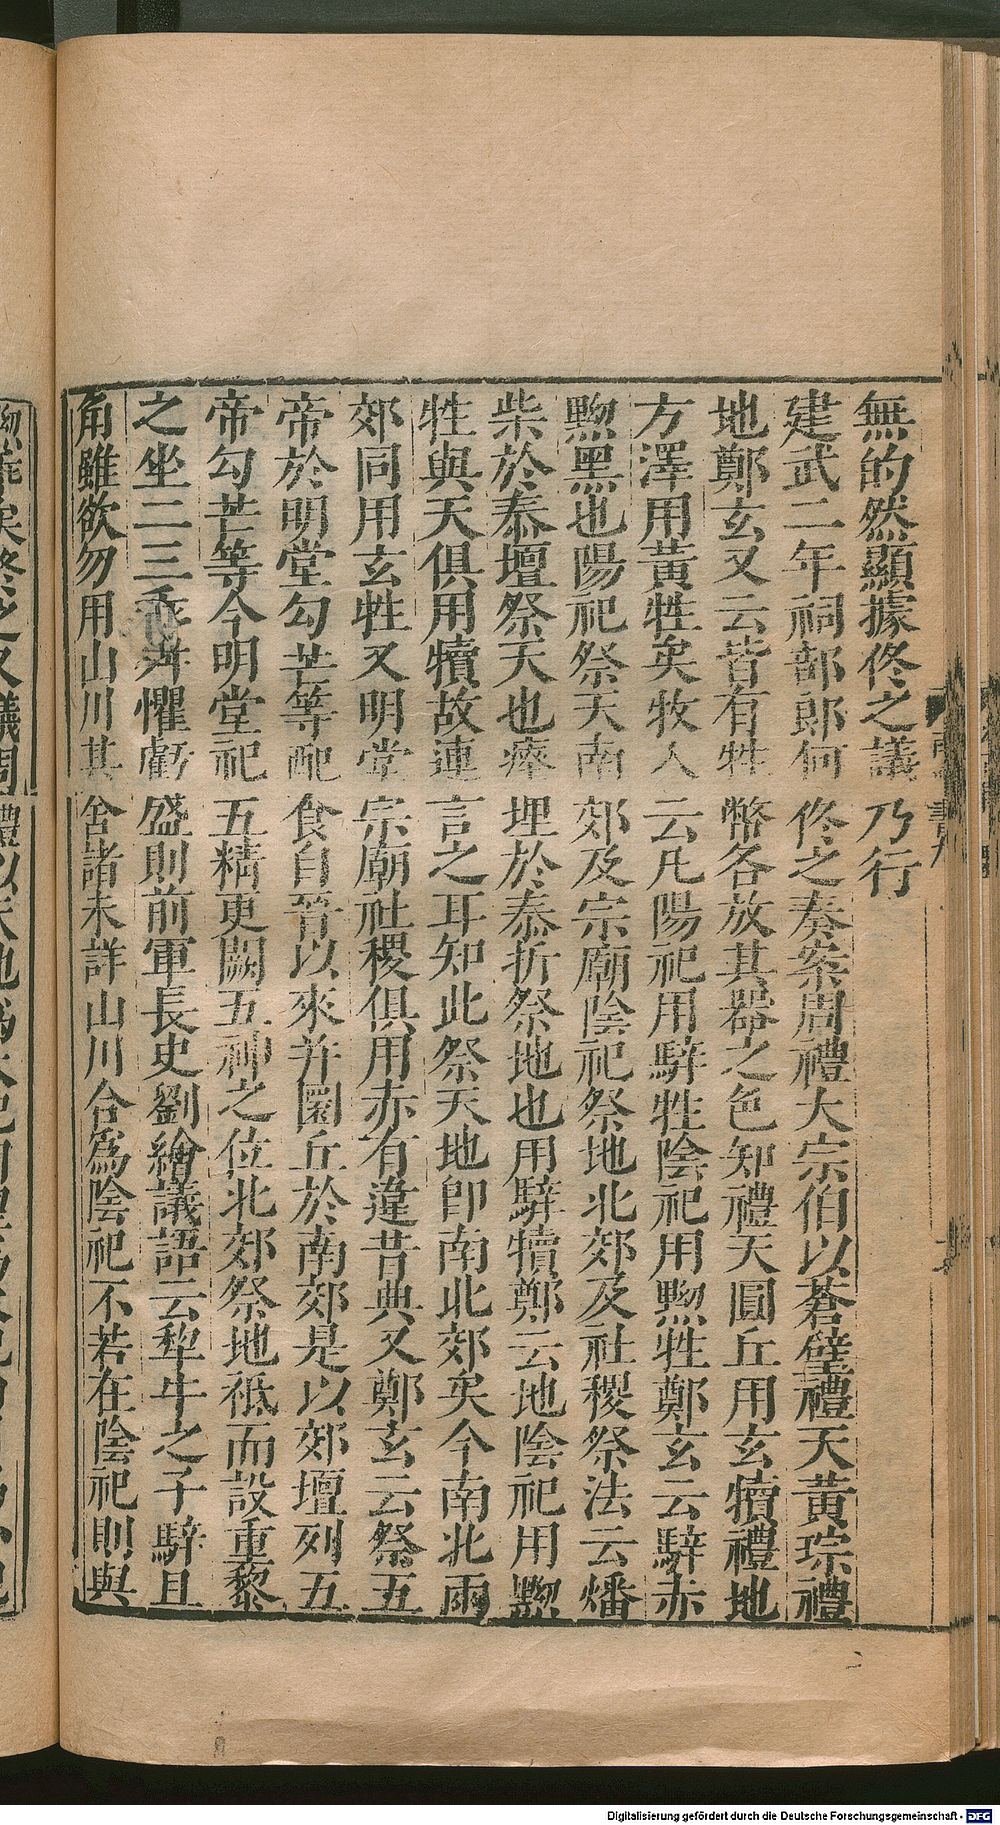 無的然顯據佟之議乃行
建武二年祠部郎何佟之奏案周禮大宗伯以蒼璧禮天黃琮禮
地鄭玄又云皆有牲幣各放其器之色知禮天圓丘用玄犢禮地
方澤用黃牲矣牧人云凡陽祀用騂牲陰祀用黝牲鄭玄云騂赤
黝黑也陽祀祭天南郊及宗廟陰祀祭地北郊及社稷祭法云燔
柴於泰壇祭天也瘞埋於泰折祭地也用騂犢鄭云地陰祀用黝
牲與天俱用犢故連言之耳知此祭天地卽南北郊矣今南北兩
郊同用玄牲又明堂宗廟社稷俱用赤有違昔典又鄭玄云祭五
帝於明堂勾芒等配食自晉以來并圜丘於南郊是以郊壇列五
帝勾芒等今明堂祀五精更闕五神之位北郊祭地祇而設重黎
之坐二三乖舛懼虧盛則前軍長史劉繪議語云犂牛之子騂且
角雖欲勿用山川其舍諸未詳山川合爲陰祀不若在陰祀則與
Digitalisierung gefördert durch die Deutsche Forschungsgemeinschaft - DFG